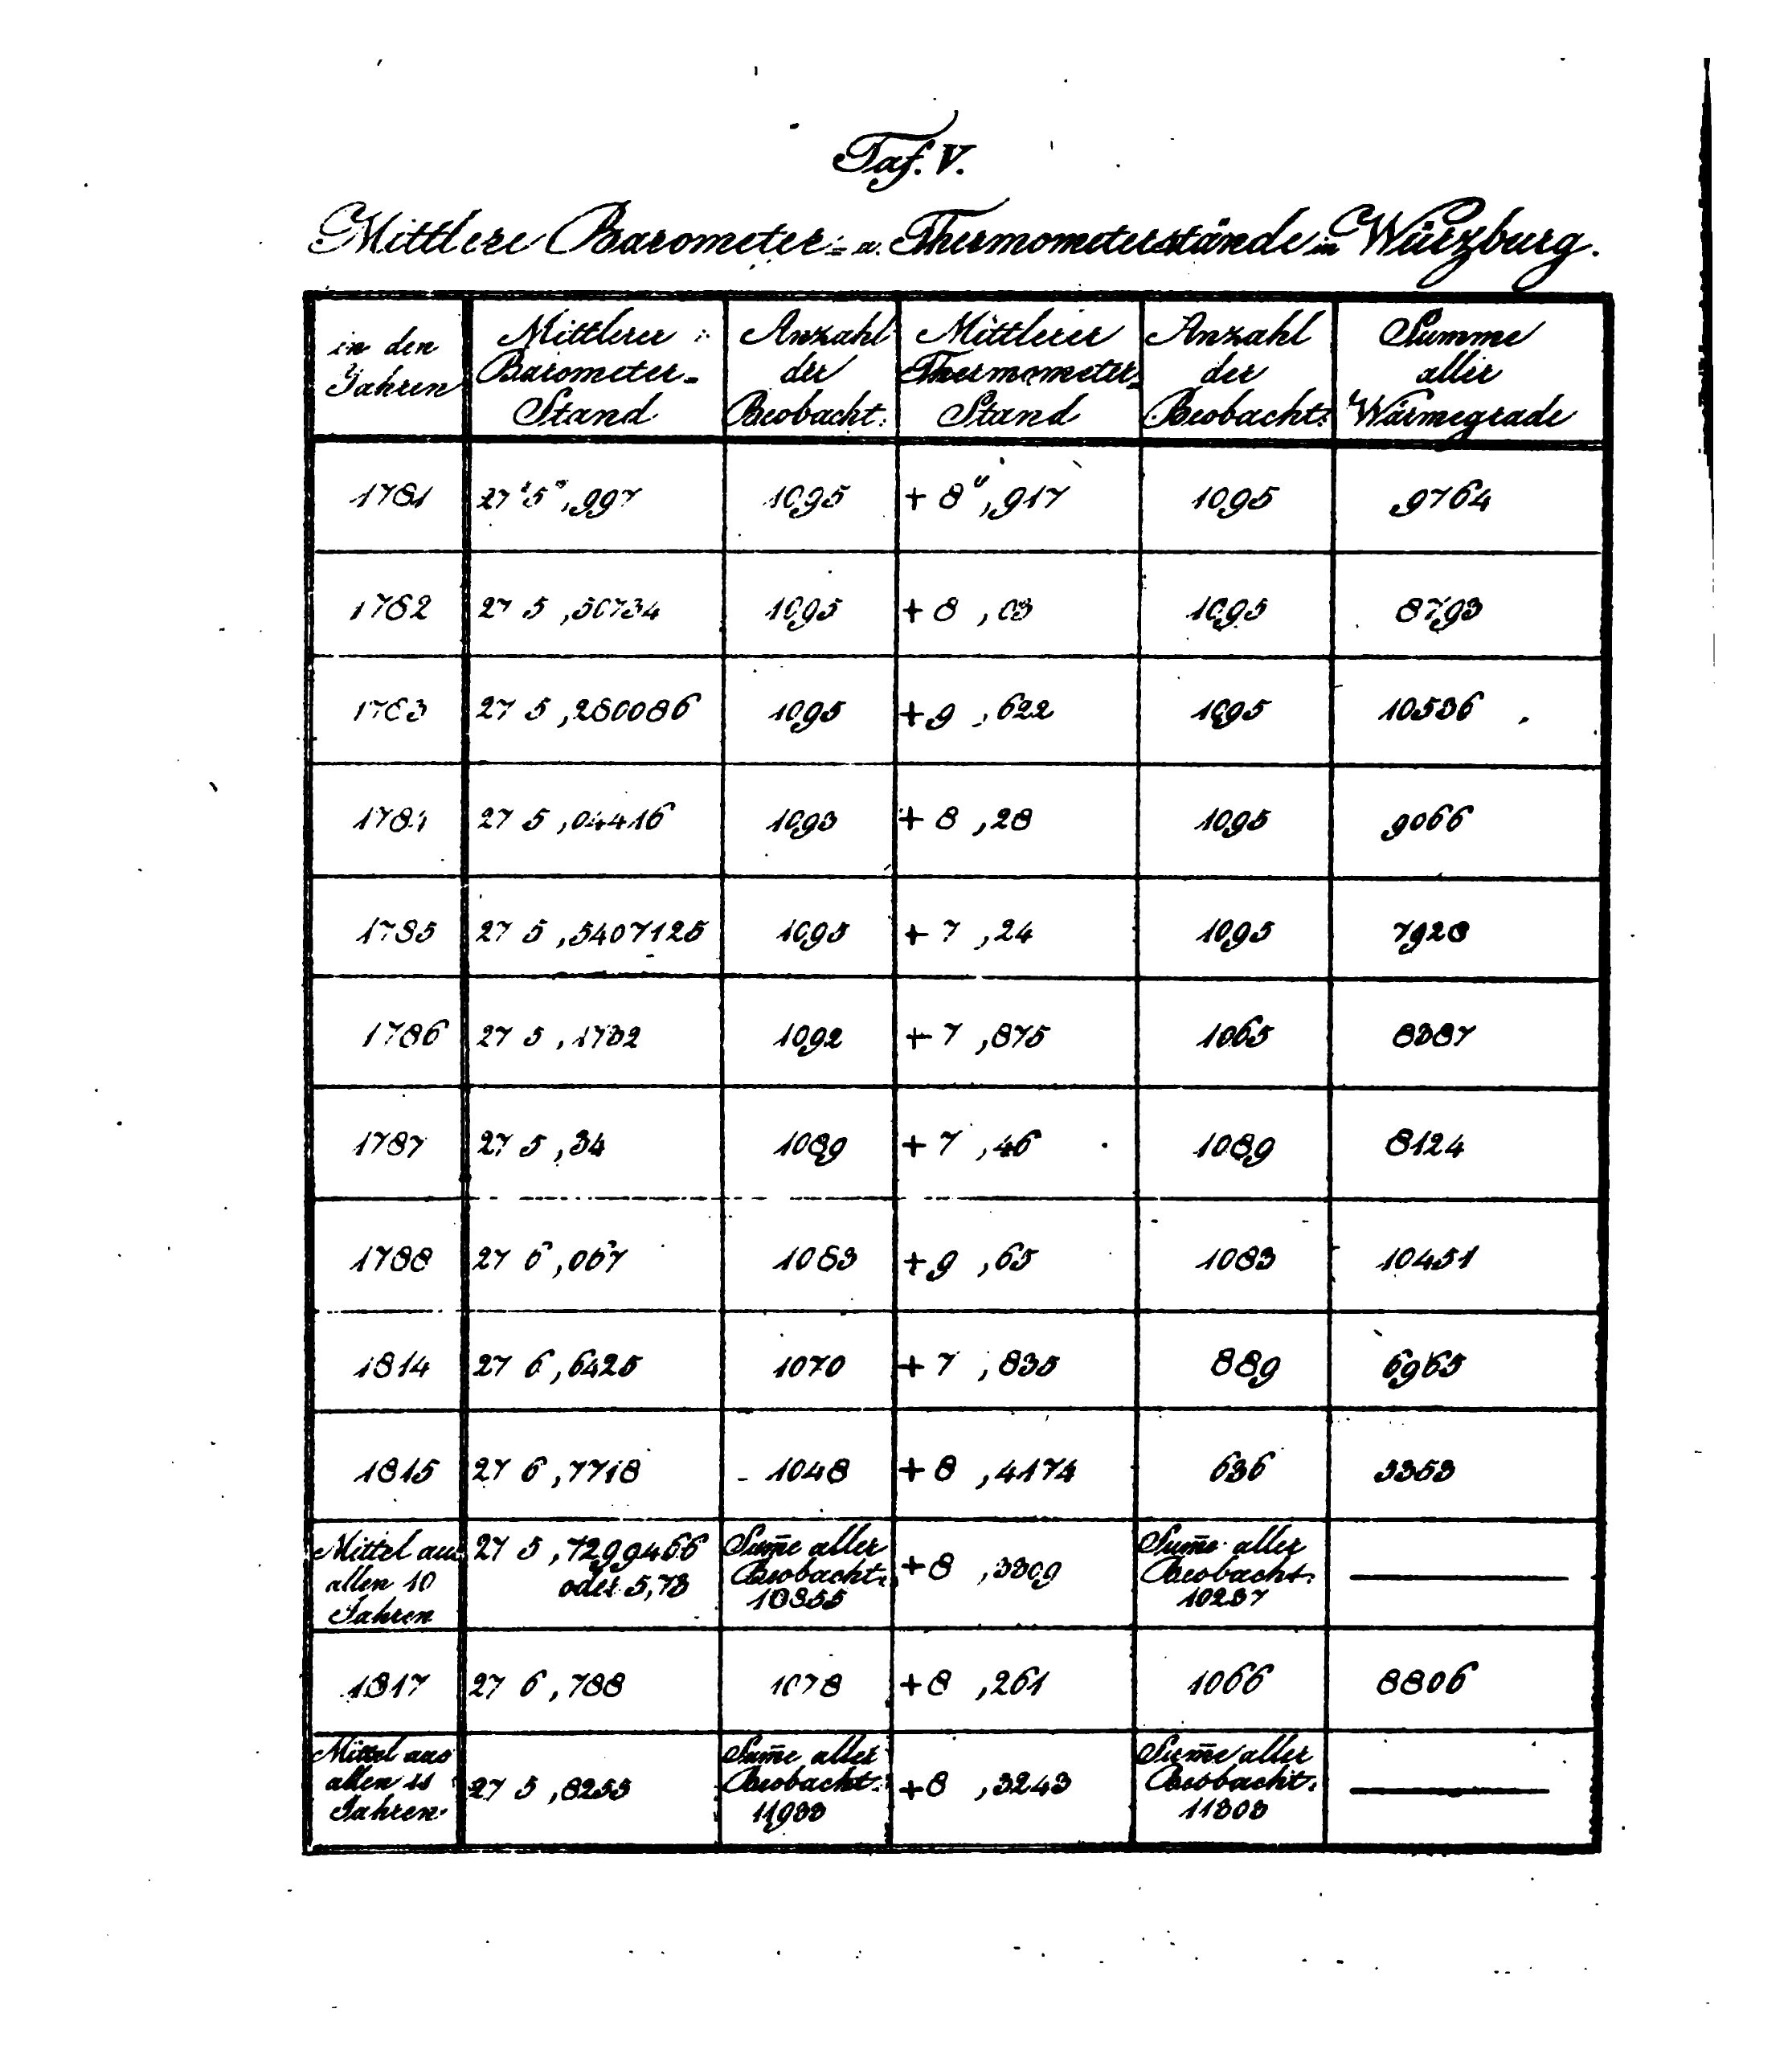 Taf. V.
Mittlere Barometer= u. Thermometerstände in Würzburg.
in den Jahren | Mittlerer Barometer= Stand | Anzahl der Beobacht: | Mittlerer Thermometer= Stand | Anzahl der Beobacht: | Summe aller Wärmegrade
1781 | 27' 5", 997 | 1095 | + 8", 917 | 1095 | 9764
1782 | 27 5, 50734 | 1095 | + 8, 03 | 1095 | 8793
1783 | 27 5, 280086 | 1095 | + 9, 622 | 1095 | 10536
1784 | 27 5, 04416 | 1093 | + 8, 28 | 1095 | 9066
1785 | 27 5, 5407125 | 1095 | + 7, 24 | 1095 | 7928
1786 | 27 5, 1732 | 1092 | + 7, 875 | 1065 | 8387
1787 | 27 5, 34 | 1089 | + 7, 46 | 1089 | 8124
1788 | 27 6, 067 | 1083 | + 9, 65 | 1083 | 10451
1814 | 27 6, 6425 | 1070 | + 7, 835 | 889 | 6965
1815 | 27 6, 7718 | 1048 | + 8, 4174 | 636 | 5353
Mittel aus allen 10 Jahren | 27 5, 7299466 oder 5,73 | Sum̄e aller Beobacht: 10855 | + 8, 3309 | Sum̄e aller Beobacht. 10237 | ———
1817 | 27 6, 788 | 1078 | + 8, 261 | 1066 | 8806
Mittel aus allen 11 Jahren | 27 5, 8253 | Sum̄e aller Beobacht: 11933 | + 8, 3243 | Sum̄e aller Beobacht. 11303 | ———